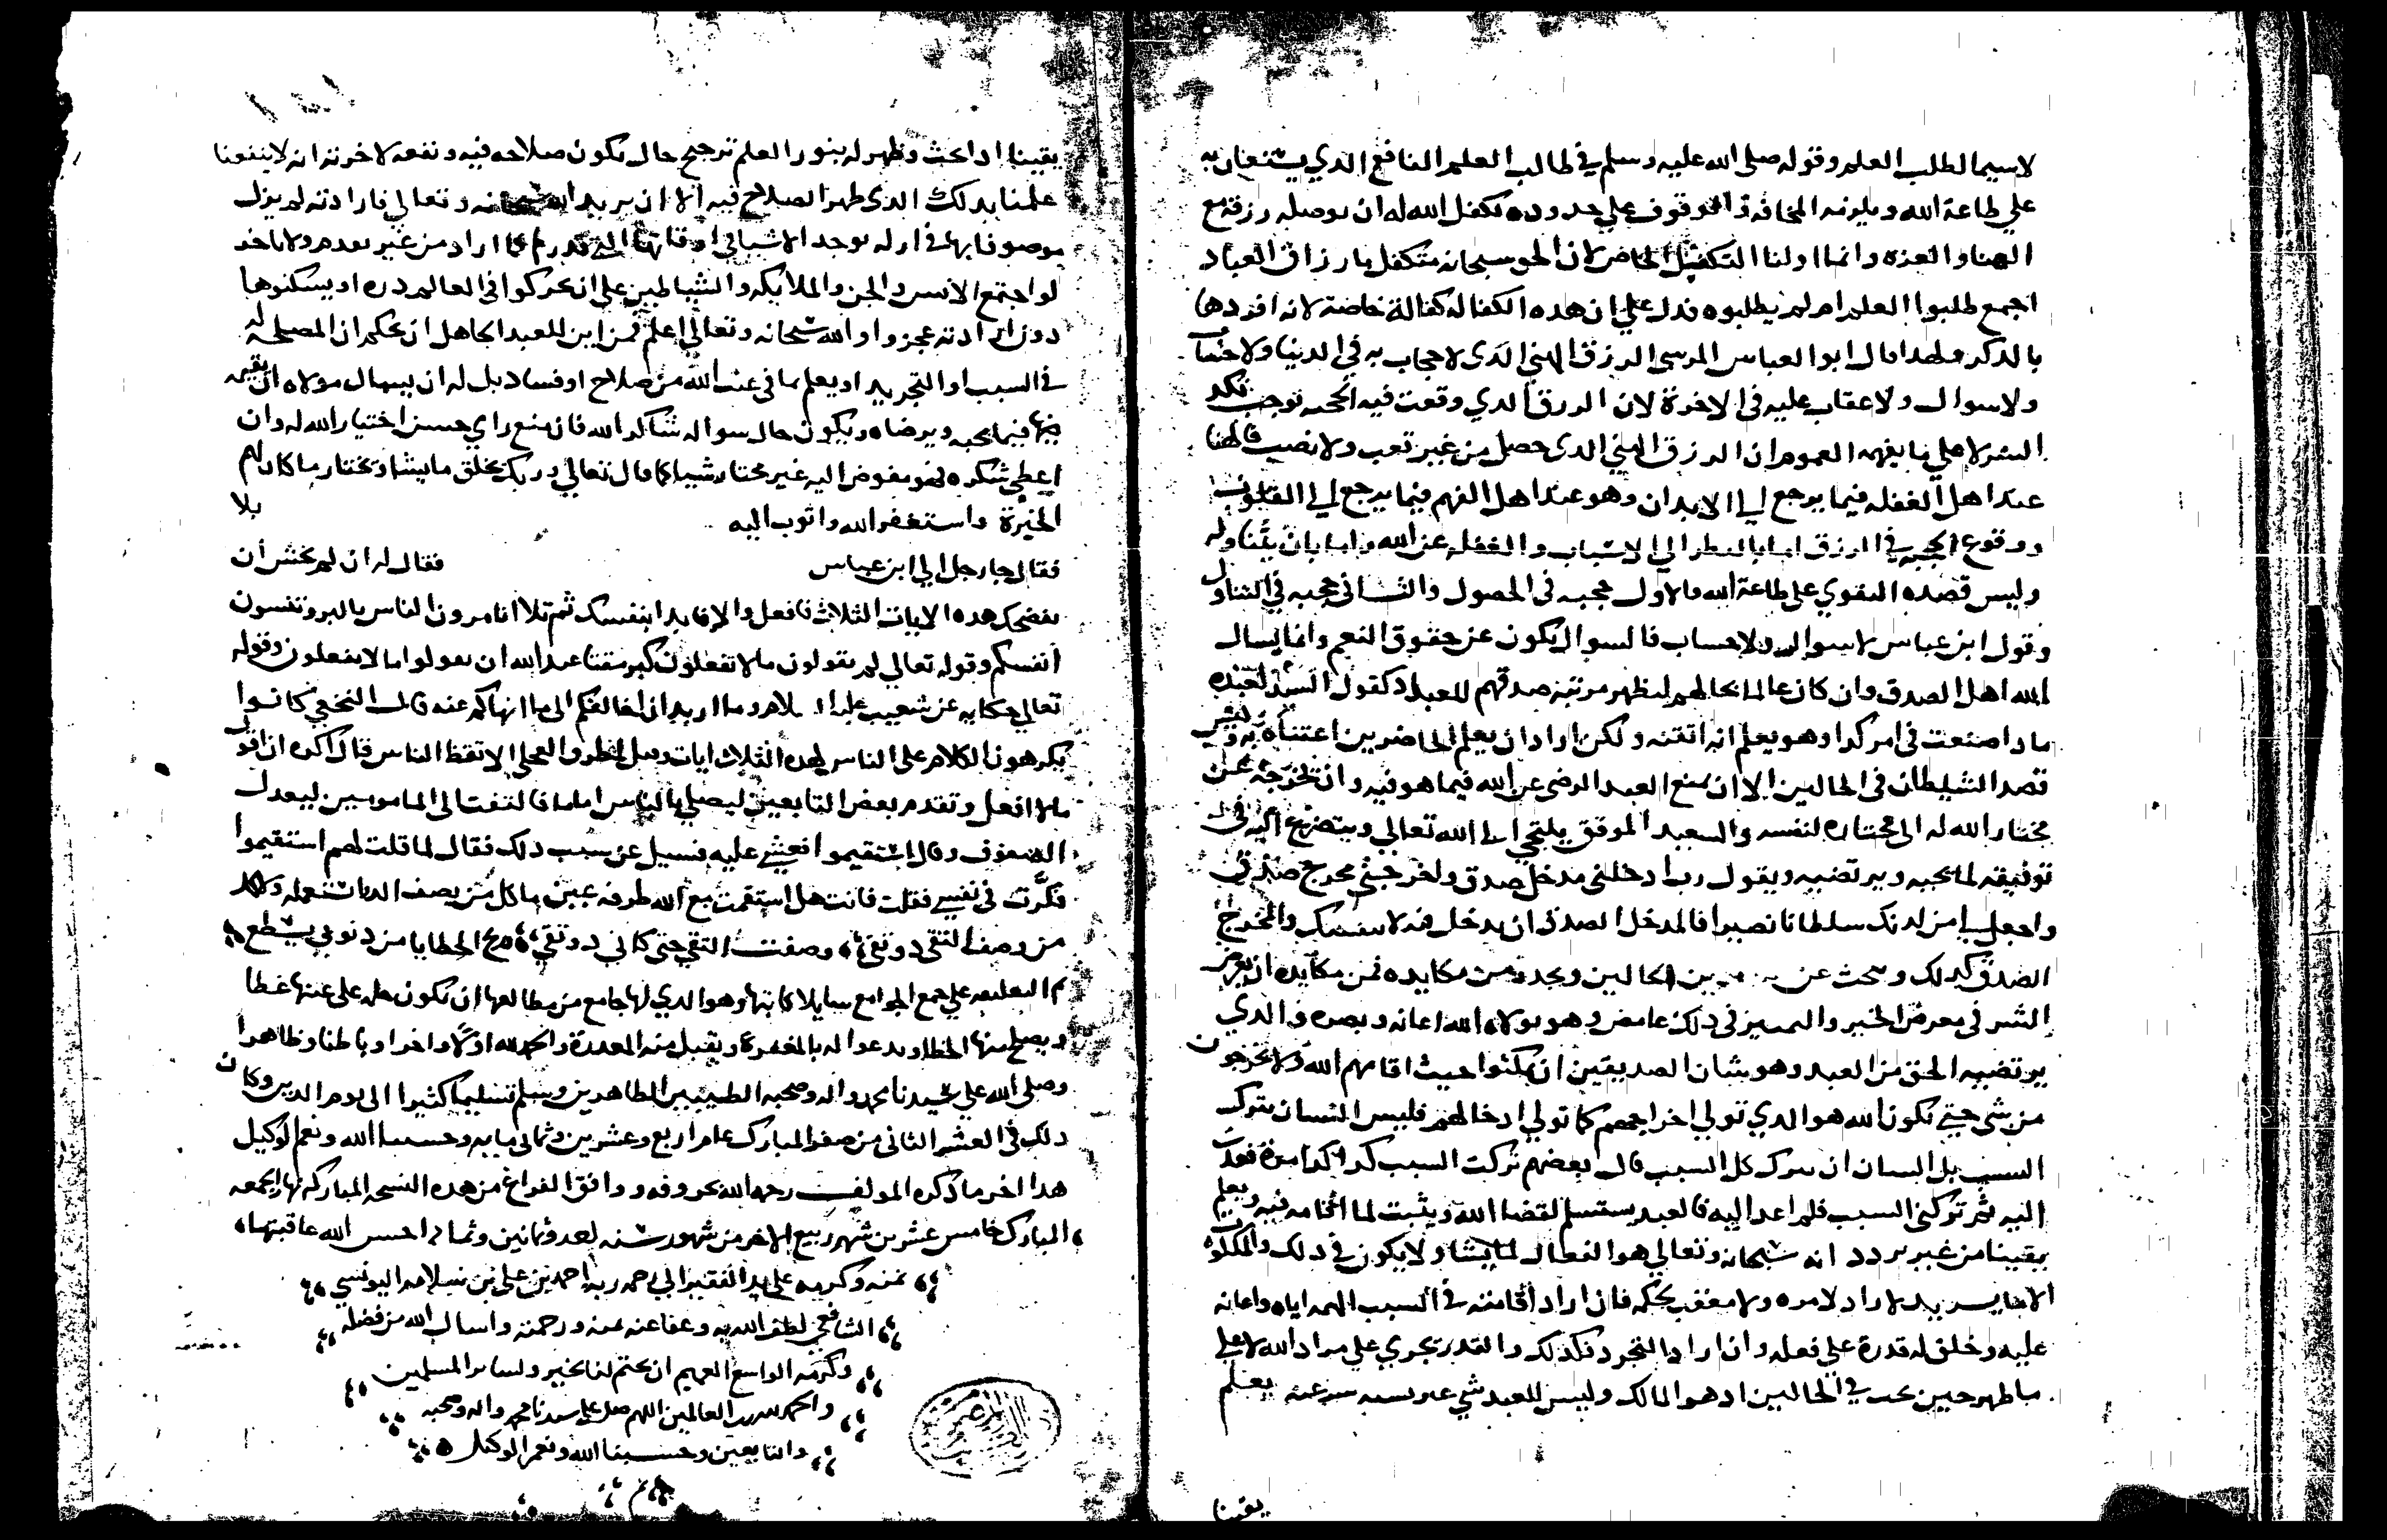 لاسيما لطلب العلم وقوله صلى الله عليه وسلم في طالب العلم النافع الدي يستعان به
على طاعة الله ويلزمه المخافة والوقوف على حدوده تكفل الله له ان يوصله رزقه مع
الهنا والعزه وانما اولنا التكفيل الخاص لان الحق سبحانه متكفل بارزاق العباد
اجمع طلبوا العلم ام لم يطلبوه فدل على ان هده الكفالة كفالة خاصة لانه افردها
بالدكر ولهدا قال ابو العباس المرسى الرزق الهنى الدى لا حجاب به في الدنيا ولا حساب
ولا سوال ولا عقاب عليه في الاخرة لان الرزق الدي وقعت فيه الحجبه توجب نكد
السر لا على ما يفهمه العموم ان الرزق الهني الدى حصل من غير تعب ولا نصب فالهنا
عند اهل الغفله فيما يرجع الى الابدان وهو عند اهل الفهم فيما يرجع الى القلوب
ووقوع الحجبه في الرزق اما بالنظر الى الاسباب والغفله عن الله واما بان يتناوله
وليس قصده التقوي على طاعة الله فالاول حجبه في الحصول والثانى حجبه في التناول
وقول ابن عباس لا سوال ولا حساب فالسوال يكون عن حقوق النعم وانما يسال
الله اهل الصدق وان كان عالما بحالهم ليظهر مرتبة صدقهم للعباد كقول السيد لعبده
مادا صنعت في امر كدا وهو يعلم انه اتقنه ولكن اراد ان يعلم الحاضرين اعتناه به وليس
قصد الشيطان في الحالين الا ان يمنع العبد الرضى عن الله فيما هو فيه وان يخرجه عن
مختار الله له الى مختاره لنفسه والسعيد الموفق يلتجي الى الله تعالى ويتضرع اليه في
توفيقه لما يحبه ويرتضيه ويقول رب ادخلنى مدخل صدق واخرجنى مخرج صدق
واجعل لى من لدنك سلطانا نصيرا فالمدخل الصدق ان يدخل فيه لا بنفسك والمخرج
الصدق كدلك وبحث عن بين الحالين ويحدد من مكايده فمن مكايده ان يعرض
الشر في معرض الخير والتمييز في دلك غامض وهو بولاه الله اعانه وبصره والدي
يرتضيه الحق من العبد وهو شان الصديقين ان يمكثوا حيث اقامهم الله ولا يخرجون
من شى حتى يكون الله هو الدي تولى اخراجهم كما تولى ادخالهم فليس الشان بترك
السبب بل الشان ان يترك كل السبب قال بعضهم تركت السبب كدا كدا مرة فعدت
اليه ثم تركنى السبب فلم اعد اليه فالعبد يستسلم لقضا الله ويثبت لما اقامه فيه ويعلم
يقينا من غير تردد انه سبحانه وتعالى هو الفعال لما يشا ولا يكون في دلك والملكوت
الا ما يريد لا راد لامره ولا معقب لحكمه فان اراد اقامته في السبب الهمه اياه واعانه
عليه وخلق له قدرة على فعله وان اراد التجرد فكدلك والقدر تجري على مراد الله لا على
ما ظهر حين بحث في الحالين اد هو المالك وليس للعبد شي يعلم
يقينا
يقينا ادا بحث وظهر له بنور العلم ترجيح حال يكون صلاحه فيه ونفعه لاخرته انه لا ينفعنا
علمنا بدلك الدى ظهر الصلاح فيه الا ان يريد الله سبحانه وتعالى فارادته لم يزل
موصوفا بها في ازله يوجد الاشيا في اوقاتها التى قدرها كما اراد من غير تقدم ولا تاخر
لو اجتمع الانس والجن والملايكه والشياطين على ان يحركوا في العالم دره او يسكنوها
دون ارادته عجزوا والله سبحانه وتعالى اعلم فمن اين للعبد الجاهل ان يحكم ان المصلحه له
في السبب او التجريد او يعلم ما في غيب الله من صلاح او فساد بل له ان يسال مولاه ان يقيمه
فيما يحبه ويرضاه ويكون حال سواله شاكرا لله فان منع راي حسن اختيار الله له وان
اعطى شكره فهو مفوض اليه غير مختار شيا كما قال تعالى وربك يخلق ما يشا ويختار ما كان لهم
الخيرة واستغفر الله واتوب اليه بلا
فقال جا رجل الى ابن عباس فقال له ان لم تخش أن
تفضحك هده الايات الثلاث فافعل والا فابدا بنفسك ثم تلا اتامرون الناس بالبر وتنسون
انفسكم وقوله تعالى لم تقولون ما لا تفعلون كبر مقتا عند الله ان تقولوا ما لا تفعلون وقوله
تعالى حكاية عن شعيب عليه السلام وما اريد ان اخالفكم الى ما انهاكم عنه قال النخعي كانوا
يكرهون الكلام على الناس لهده الثلاث ايات الا تعظ الناس قال اكره ان اقول
ما لا افعل وتقدم بعض التابعين ليصلي بالناس اماما فالتفت الى المامومين ليعدل
الصفوف وقال استقيموا فغشي عليه فسيل عن سبب دلك فقال لما قلت لهم استقيموا
فكرت في نفسى فقلت فانت هل استقمت مع الله طرفة عين ما كل من يصف الدوا يستعمله ولا كل
من وصف التقى دو تقى وصفت التقى حتى كاني دو تقي وريح الخطايا من ثوبي يسطع
تم التعليق على جمع الجوامع سايلا كاتبها وهو الدي لها جامع من مطالعها ان يكون حلمه على عيبها غطا
ويصلح منها الخطا ويدعوا له بالمغفرة ويقبل منه المعدرة والحمد لله اولا واخرا وباطنا وظاهرا
وصلى الله على سيدنا محمد واله وصحبه الطيبين الطاهرين وسلم تسليما كثيرا الى يوم الدين وكان
دلك في العشر الثانى من صفر المبارك عام اربع وعشرين وثمانى مايه وحسبنا الله ونعم الوكيل
هدا اخر ما دكره المولف رحمه الله بحروفه ووافق الفراغ من هده النسخه المباركه نهار الجمعه
المبارك خامس عشرين شهر ربيع الاخر من شهور سنه احد وثمانين وثمانمايه احسن الله عاقبتها
بمنه وكرمه على يد الفقير الى رحمه ربه احمد بن على بن سلامه اليونسي
الشافعي لطف الله به وعفا عنه بمنه ورحمته واسال الله من فضله
وكرمه الواسع العميم ان يختم لنا بخير ولساير المسلمين
والحمد لله رب العالمين اللهم صل على سيدنا محمد واله وصحبه
والتابعين وحسبنا الله ونعم الوكيل
تم